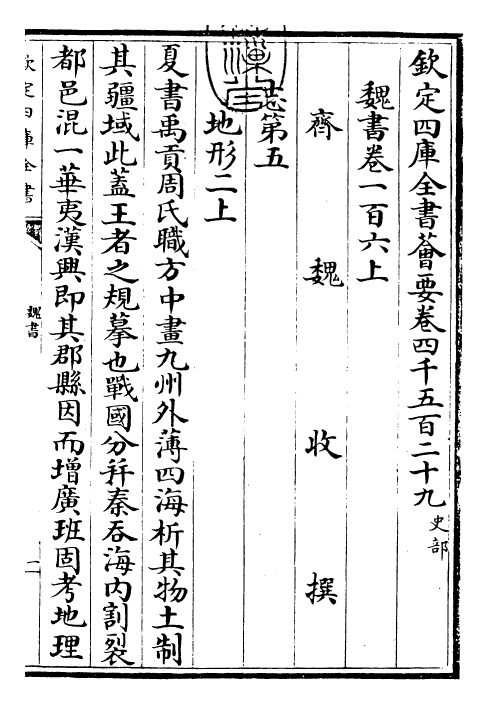 欽定四庫全書薈要卷四千五百二十九 史部
魏書卷一百六上
齊 魏 收 撰
志第五
地形二上
夏書禹貢周氏職方中畫九州外薄四海析其物土制
其疆域此蓋王者之規摹也戰國分并秦吞海内割裂
都邑混一華夷漢興即其郡縣因而增廣班固考地理
欽定四庫全書
魏書